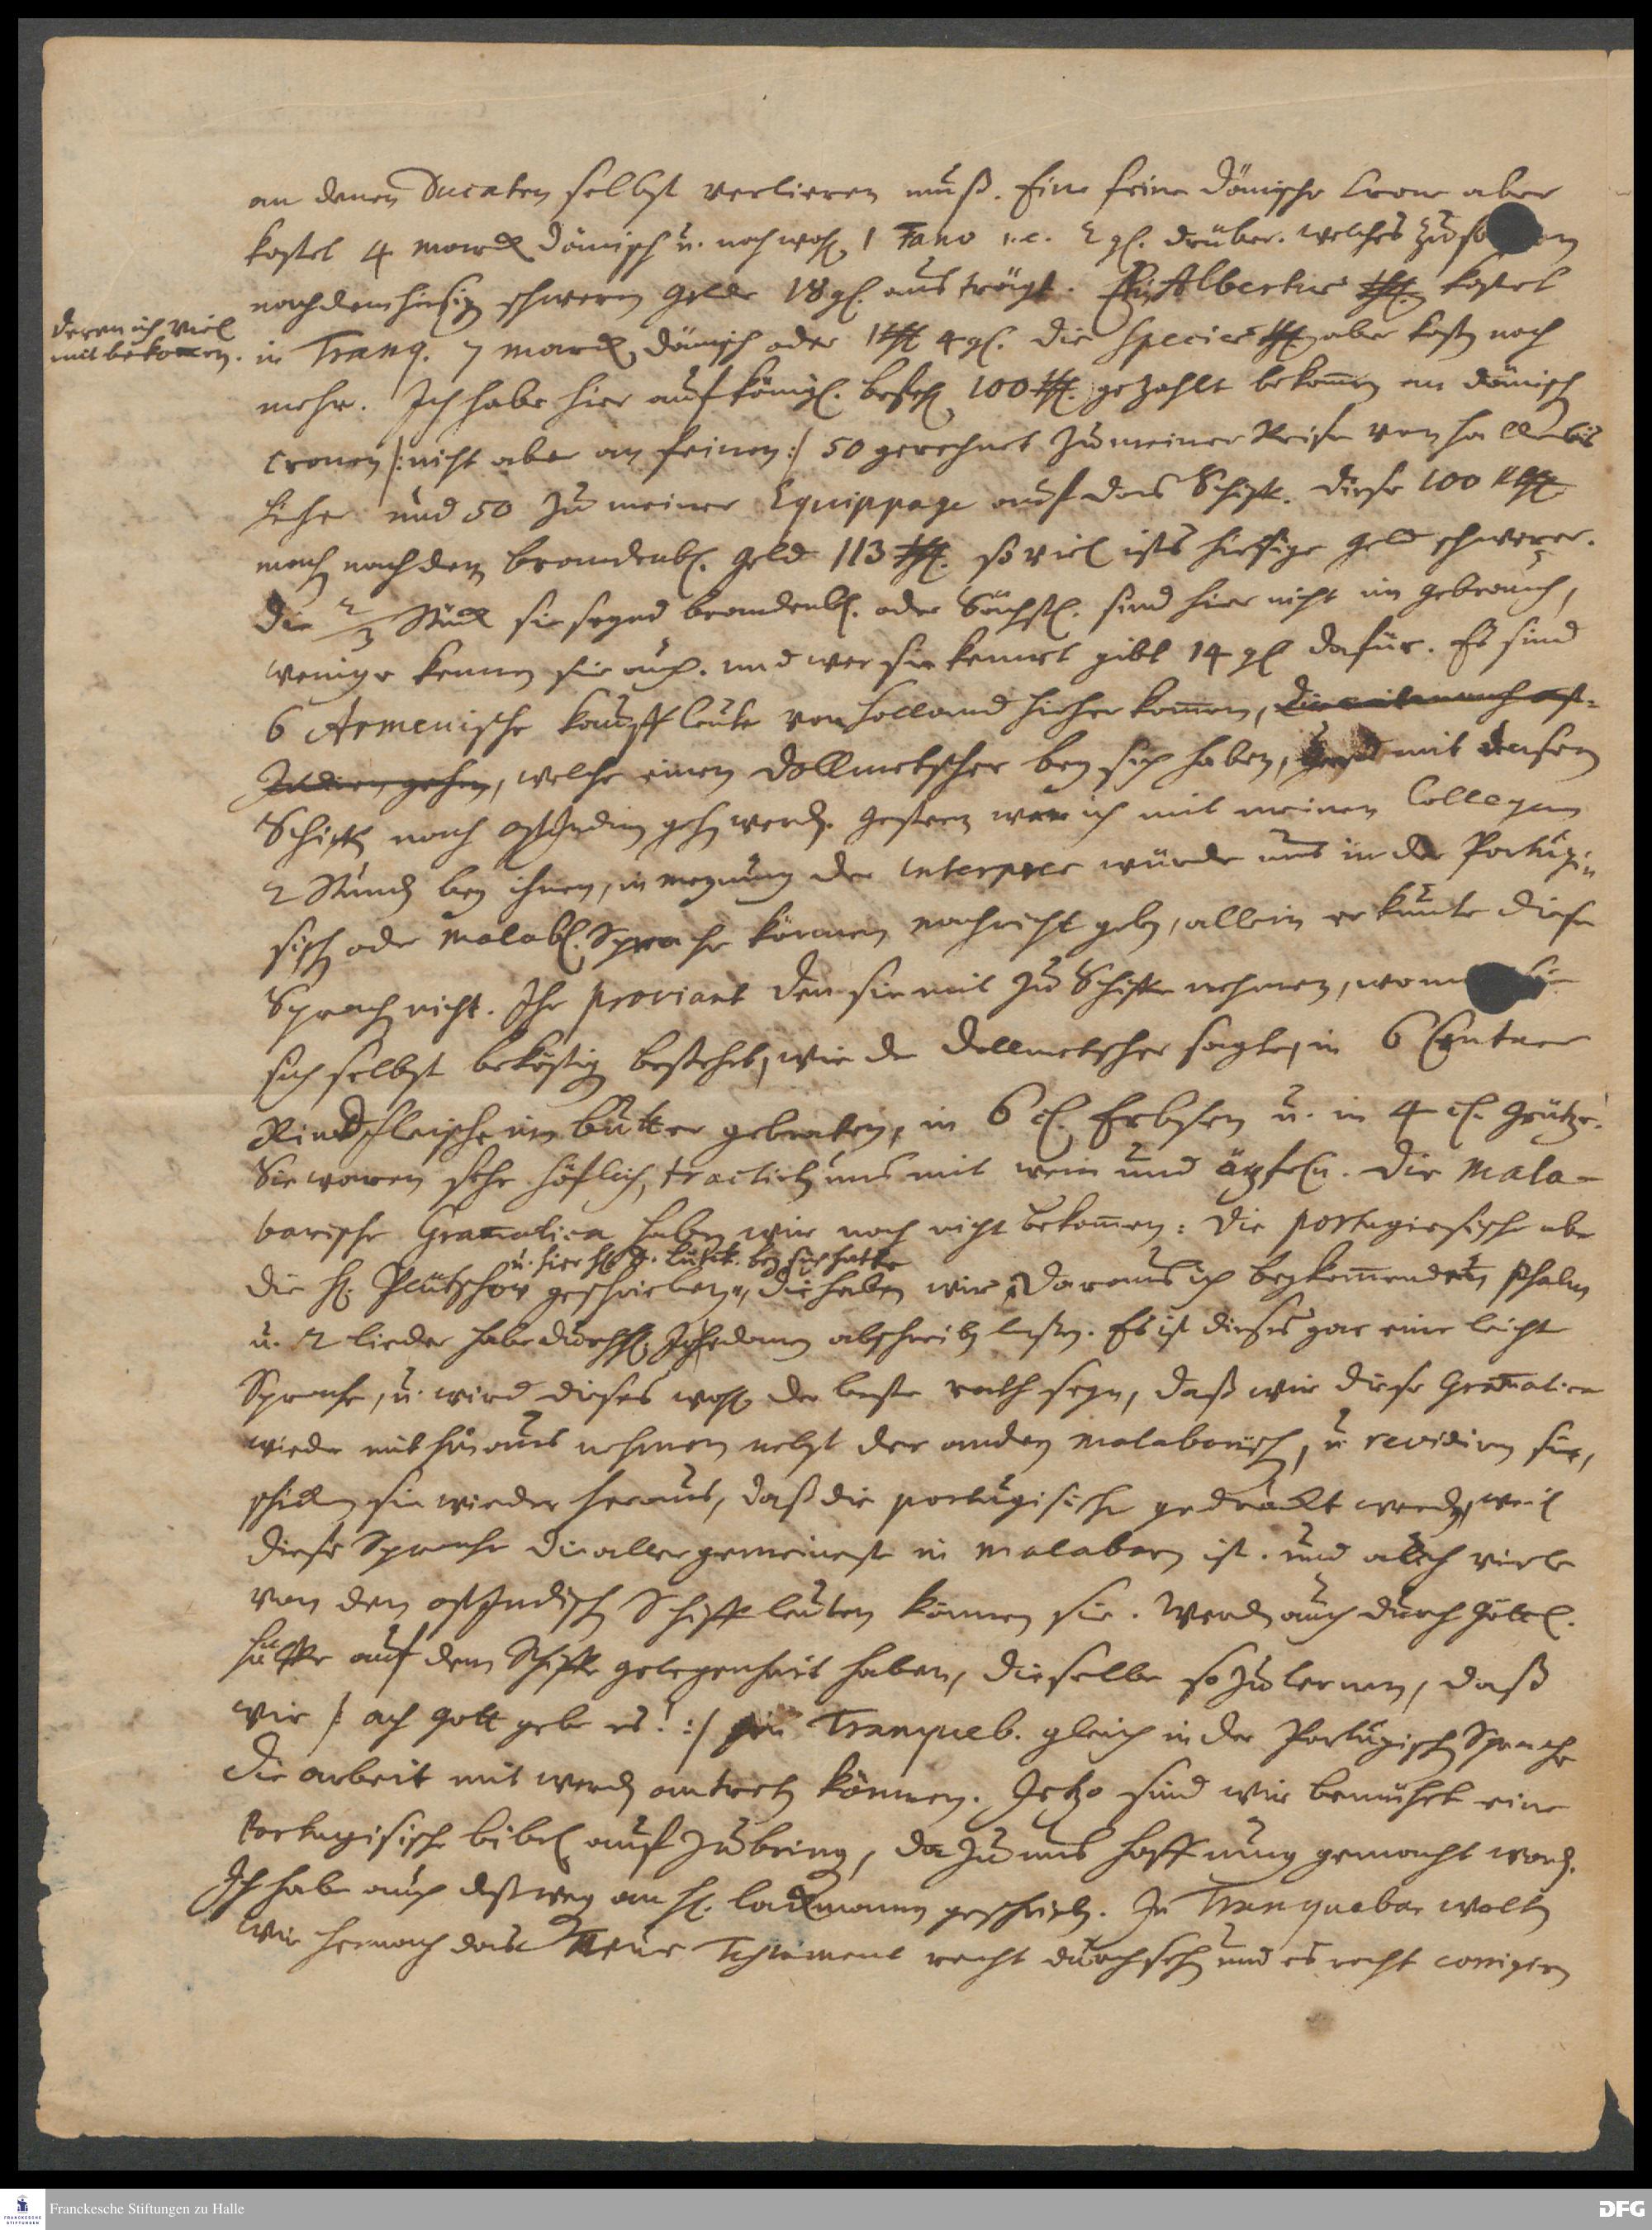 an denen Ducaten selbst verlieren muß. Eine feine Dänische Crone aber
kostet 4 marck Dänisch u. noch wohl 1 Fano i.e. 2 gl. drüber. welches zus en
nach dem hiesig schweren Gelde 18 gl. aus trägt. Ein Albertus thl. kostet
deren ich viel
mit bekomen.
in Tranq. 7 marck Dänisch oder 1 thl 4 gl. die Species thl. aber kost noch
mehr. Ich habe hier auf königl. befehl 100 thl. gezahlt bekomen an dänisch
cronen /: nicht aber an feinen :/ 50 gerechnet zu meiner Reise von Halle bis
hieher und 50 zu meiner Equippage auf das Schiff. diese 100 thl
mach nach dem brandenbl. Geld 113 thl. so viel ists hiesige Geld schwerer.
die 2/3 Stück sie seynd brandenbl. oder Sächsl. sind hier nicht im gebrauch,
wenige kennen sie auch. und wer sie kennet gibt 14 gl dafür. Es sind
6 Armenische Kauffleute von Holland hieher komen, die mit nach Ost-
Indien gehen, welche einen Dollmetscher bey sich haben, und mit diesen
Schiffe nach OstIndien gehn werd. Gestern war ich mit meinen Collegen
2 Stund bey ihnen, in meynung der Interpres würde uns in der Portugi-
sisch oder Malabl. Sprache können nachricht geben, allein er kunte diese
Sprach nicht. Ihr proviant den sie mit zu Schiffe nehmen, wom sie
sich selbst beköstig bestehet, wie der Dollmetscher sagte, in 6 Centner
Rindfleische in butter gebraten, in 6 cl. Erbsen u. in 4 cl. Grütze.
Sie waren sehr höflich, tractirten uns mit wein und äpfeln. Die Mala-
barische Gramatica haben wir noch nicht bekomen: die portugiesische aber
u. hier H. D. Lütk. bey sich hatte
die H. Plütschow geschrieben, die haben wir, daraus ich beykomenden Psalm
u. 2 lieder habe durch H. Jordan abschreiben laßen. Es ist dieses gar eine leichte
Sprache, u. wird dieses wohl der beste rath seyn, daß wir diese Gramatica
wieder mit hinaus nehmen nebst der anden malabarisch, u. revidiren sie,
schicken sie wieder heraus, daß die portugisische gedruckt werde, weil
diese Sprache die allergemeinest in Malabarn ist. und auch viele
von den OstIndisch Schiffleuten können sie. Werden auch durch Göttl.
hülffe auf dem Schiffe gelegenheit haben, dieselbe so zu lernen, daß
wir /: ach Gott gebe es! :/ in Tranqueb. gleich in der Portugisch Sprache
die arbeit mit werden antreten können. Jetzo sind wir bemühet eine
Portugisische bibel auf zu bring, dazu uns Hoffnung gemacht word.
Ich habe auch deßweg an H. Lackmann geschrieb. In Tranquebar wolten
wir hernach das Neue Testament recht durchsehn und es recht corrigiren
Franckesche Stiftungen zu Halle
DFG